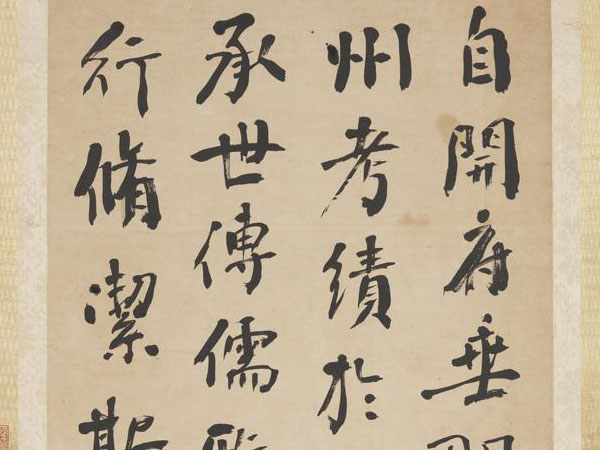 自開府垂
州考績於
承世傳儒
行脩潔